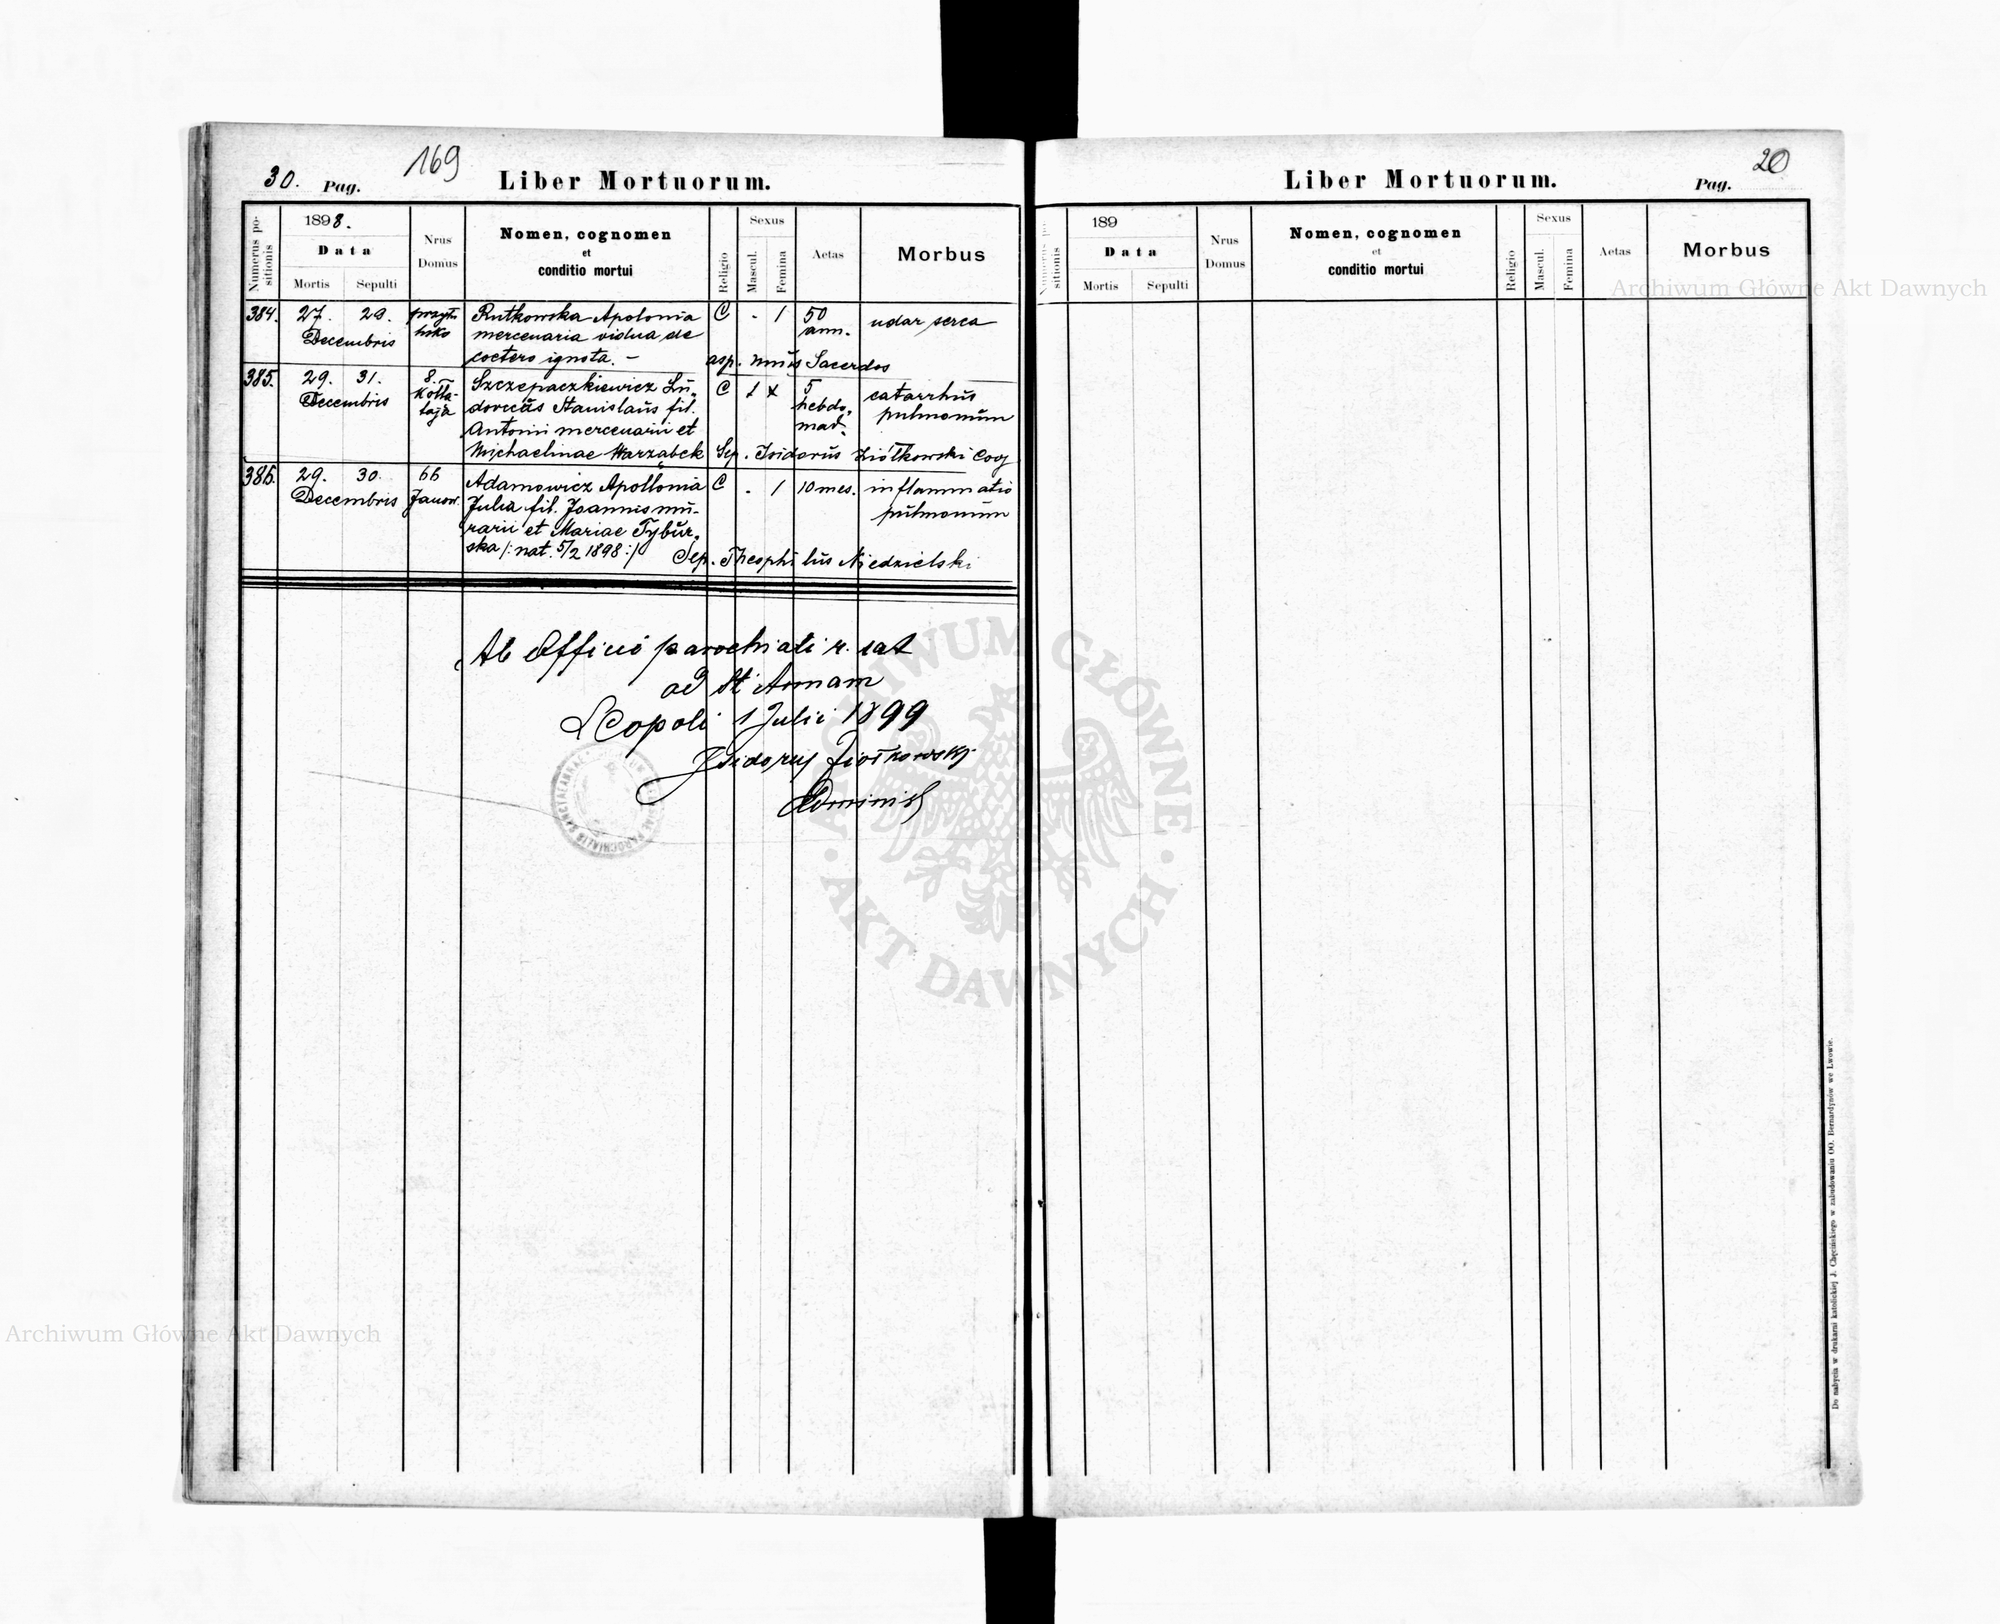 30. Pag. 169 Liber Mortuorum.
Numerus positionis
1898.
Data
Mortis Sepulti
Nrus Domus
Nomen, cognomen
et
conditio mortui
Religio
Sexus
Mascul. Femina
Aetas
Morbus
384. 27. 29. Rutkowska Apolonia C - 1 50 udar serca
Decembris mercenaria vidua de ann.
coetero ignota. – asp. nullus Sacerdos
385. 29. 31. 8. Szczepaczkiewicz Lu- C 1 5 catarrhus
Decembris Kołła- dovicus Stanislaus fil. hebdo- pulmonum
taja Antonii mercenarii et mad.
Michaelinae Warzabek Sep. Isidorus Ziółkowski Coop
386. 29. 30. 66 Adamowicz Apollonia C - 1 10 mes. inflammatio
Decembris Janow. Julia fil. Joannis mu- pulmonum
rarii et Mariae Tybur-
ska /: nat. 5/2 1898 :/ Sep. Theophilus Niedzielski
Ab Officio parochiali r. lat
ad St Annam
Leopoli 1 Julii 1899
Isidorus Ziółkowski
Administ
Liber Mortuorum. Pag. 20
Numerus positionis
189
Data
Mortis Sepulti
Nrus Domus
Nomen, cognomen
et
conditio mortui
Religio
Sexus
Mascul. Femina
Aetas
Morbus
Do nabycia w drukarni katolickiej J. Chęcińskiego w zabudowaniu OO. Bernardynów we Lwowie.
Archiwum Główne Akt Dawnych
ARCHIWUM GŁÓWNE
· AKT DAWNYCH ·
Archiwum Główne Akt Dawnych